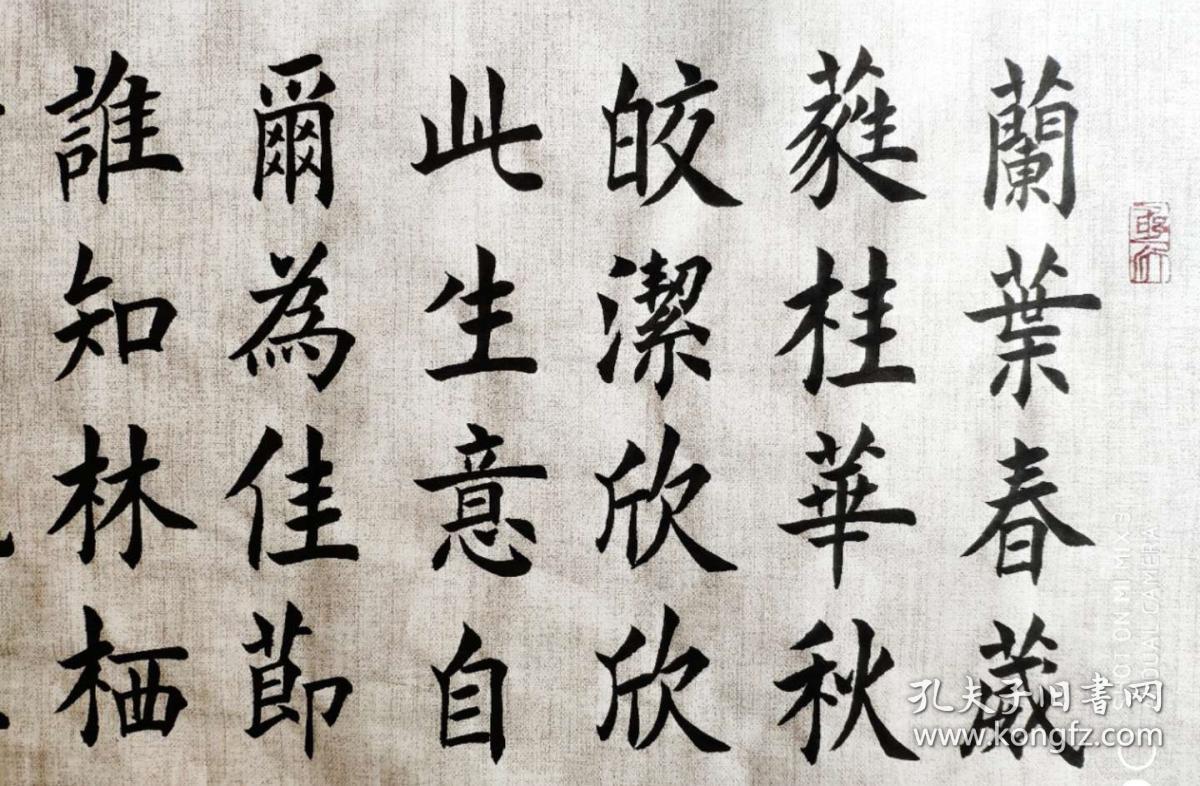 蘭葉春葳
蕤桂華秋
皎潔欣欣
此生意自
爾為佳節
誰知林栖
孔夫子旧书网
www.kongfz.com
SHOT ON MI MIX3
DUAL CAMERA